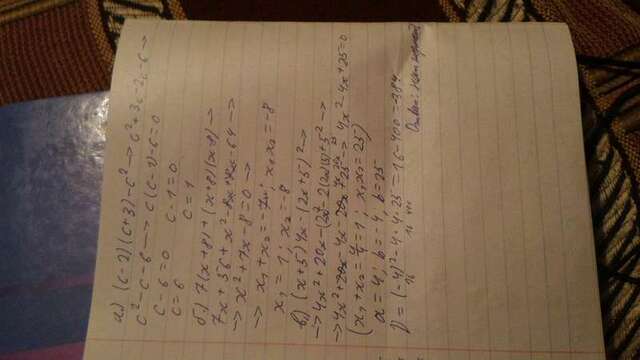 а.) (c-2)(c+3)-c² → c²+3c-2c-6 →
c²-c-6 → c(c-1)-6=0
c-6=0 c-1=0
c=6 c=1
б.) 7(x+8)+(x+8)(x-8) →
7x+56+x²-8x+8x-64 →
→ x²+7x-8=0 →
→ x₁+x₂=-7; x₁x₂=-8
x₁=1; x₂=-8
в) (x+5)4x-(2x+5)² →
→ 4x²+20x-(2x²-2(2x)(5)+5² →
→ 4x²+20x-4x-20x-25 → 4x²-4x+25=0
(x₁+x₂=4=1; x₁x₂=25)
x=4; b=-4, b=25
D=(-4)²-4·4·25=16-400=-384
Ответ: нет корней